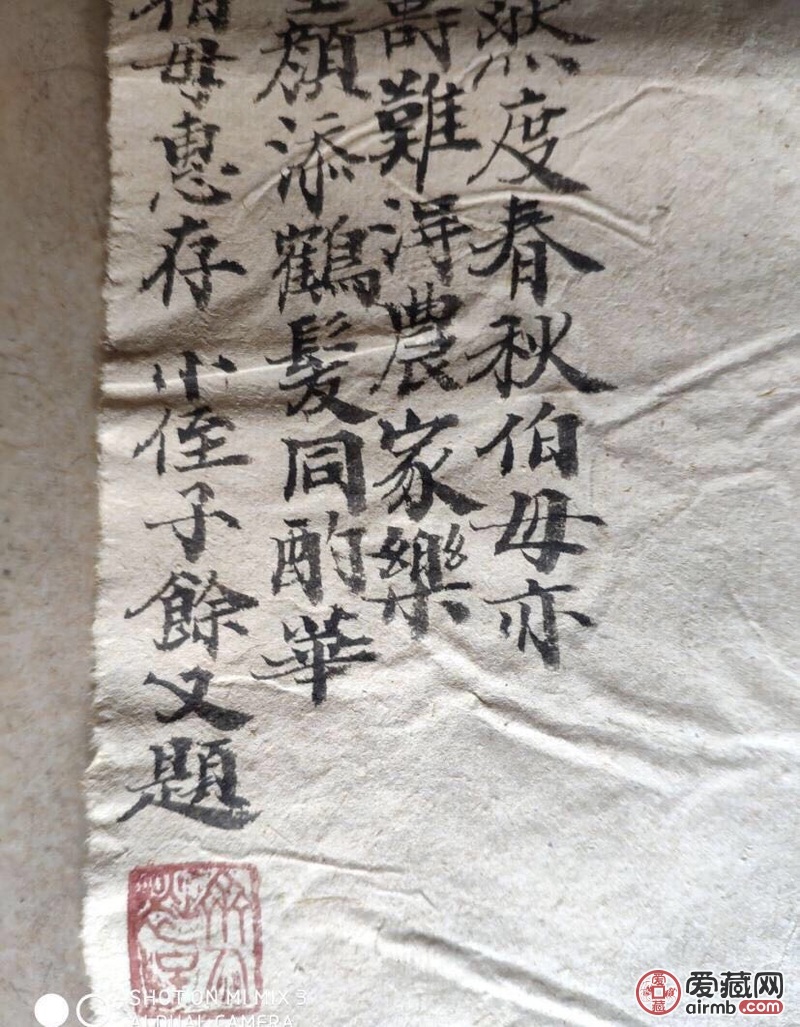 然度春秋伯母亦
壽難得農家樂
顏添鶴髮同酌華
伯母惠存 小侄子餘又題
SHOT ON MI MIX 3
AI DUAL CAMERA
爱藏网
airmb.com